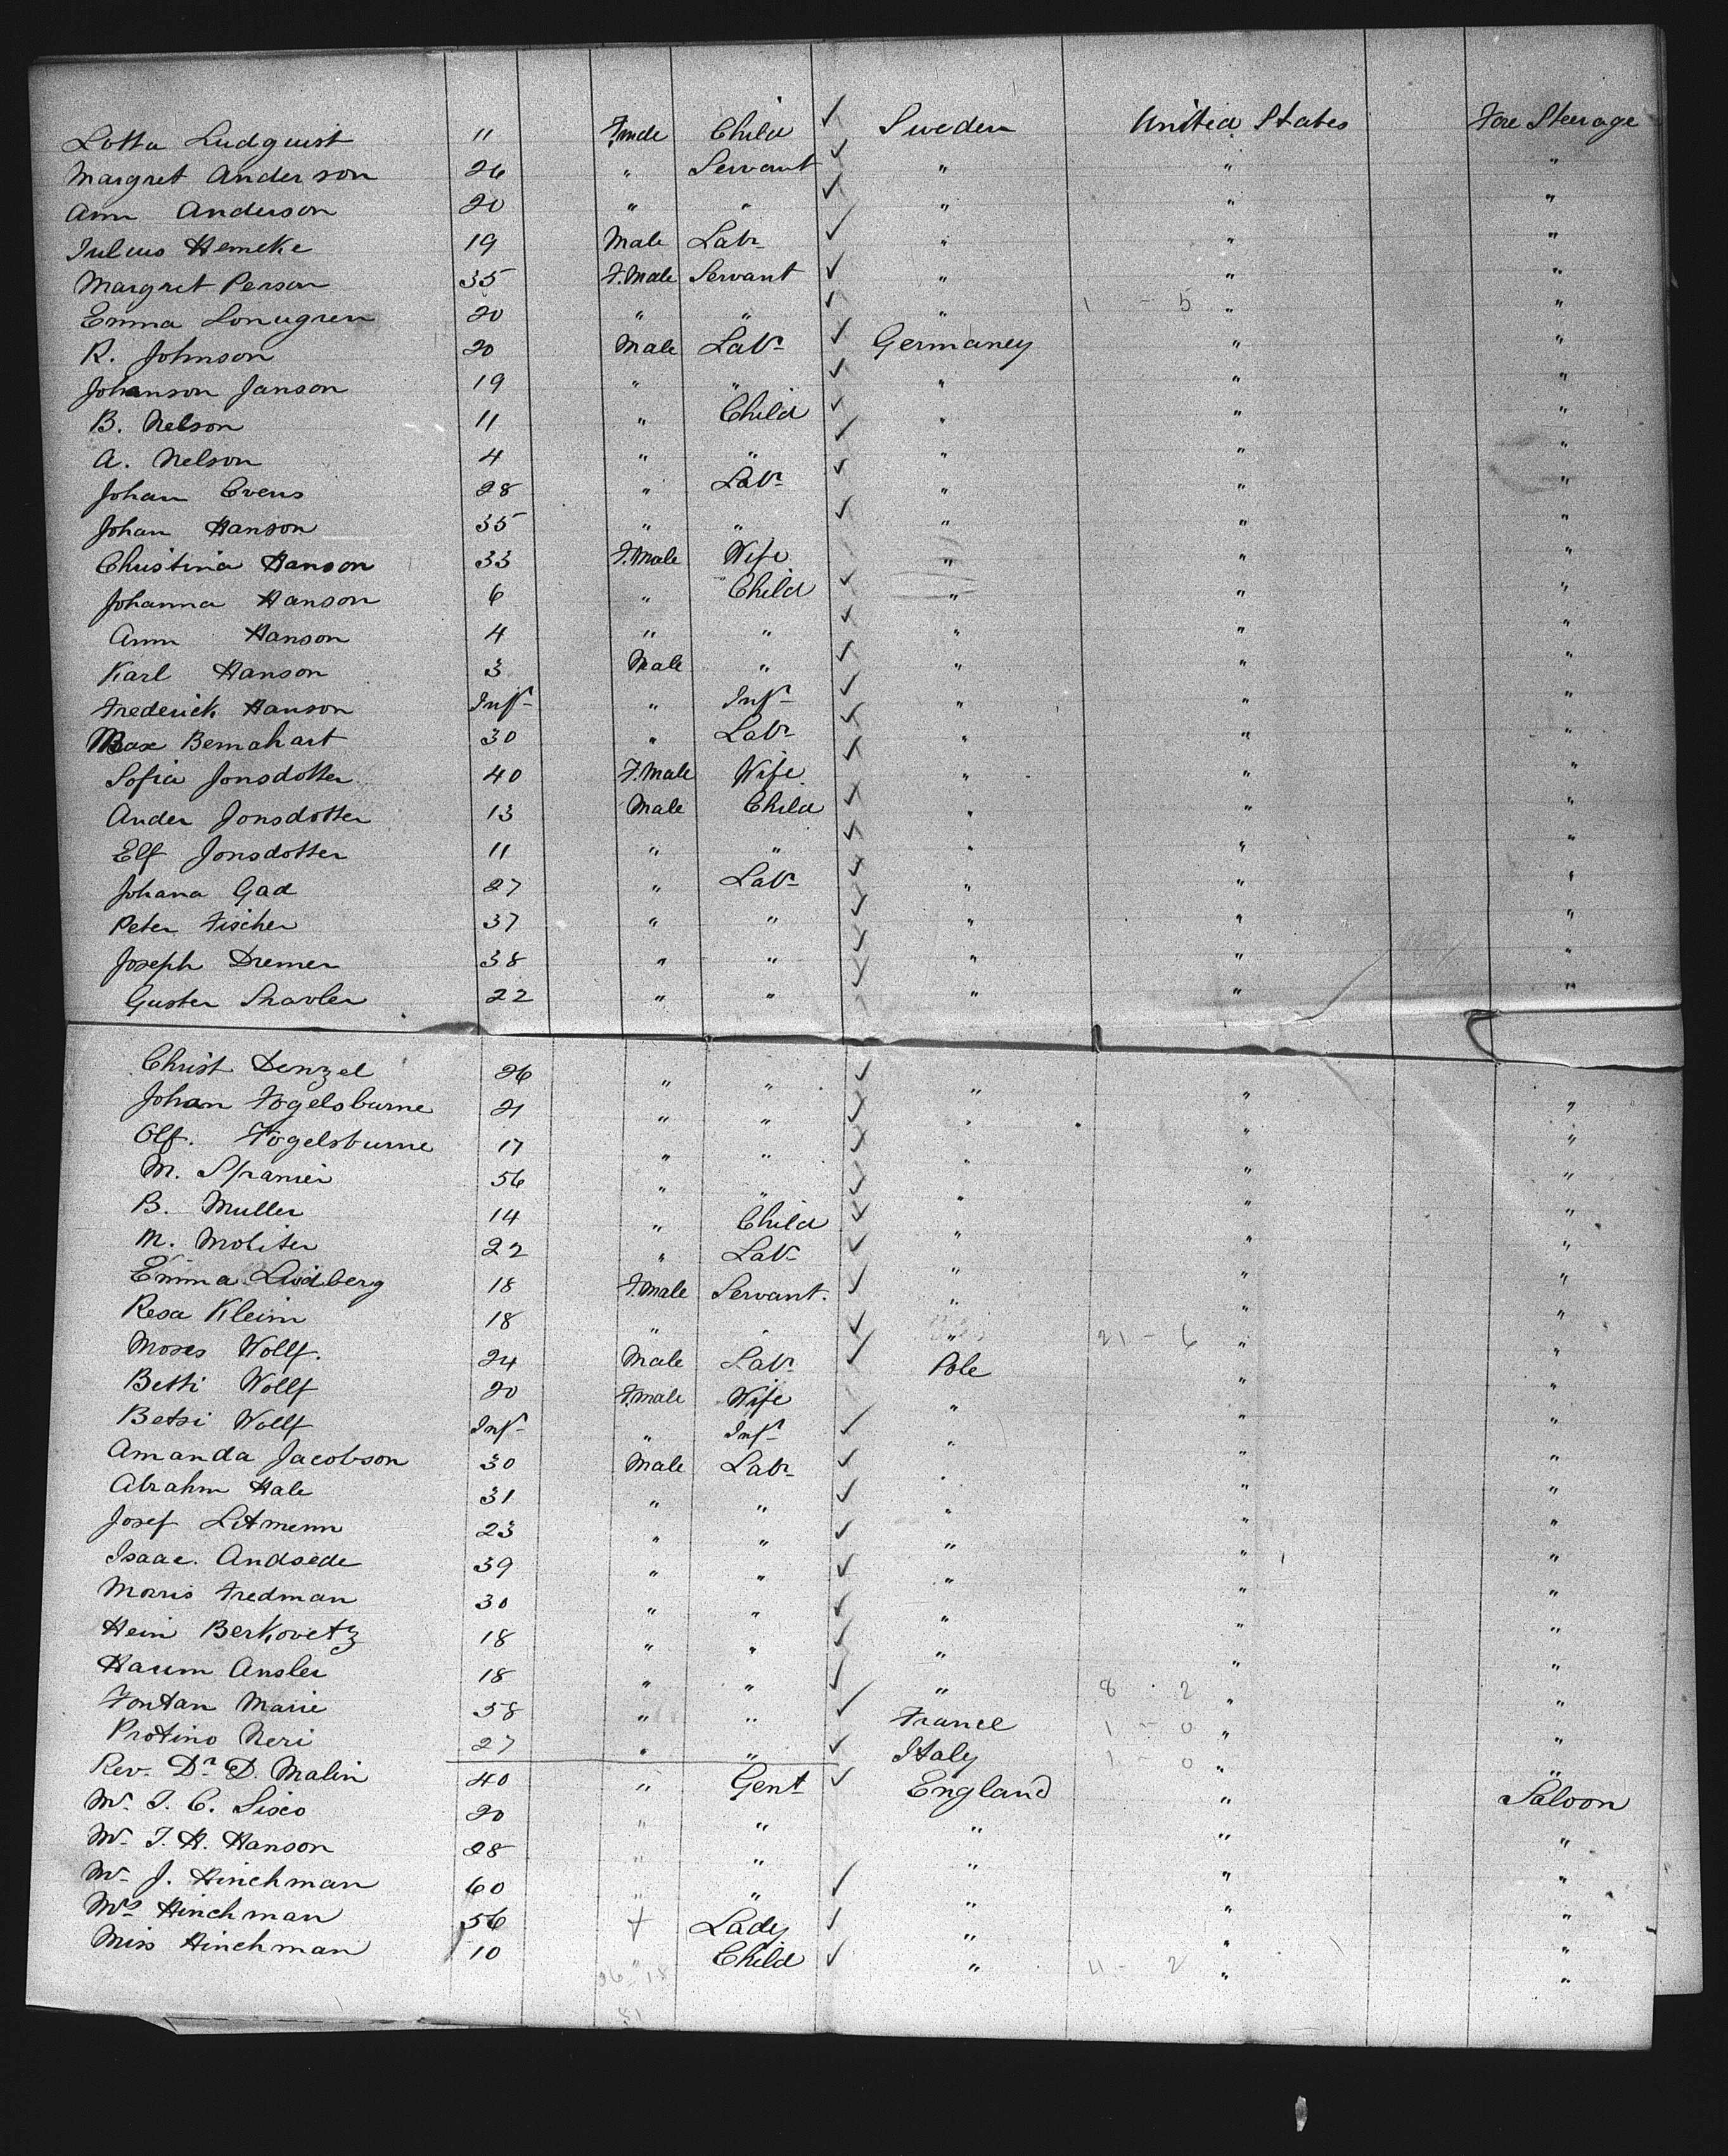 Lotta Ludquist 11 Fmale Child ✓ Sweden United States Fore Steerage
Margret Anderson 26 " Servant ✓ " " "
Ann Anderson 20 " " ✓ " " "
Julius Hemeke 19 Male Labr ✓ " " "
Margret Person 35 F.Male Servant ✓ " " "
Emma Lonugren 20 " " ✓ " 1 - 5 " "
R. Johnson 20 Male Labr ✓ Germaney " "
Johanson Janson 19 " " ✓ " " "
B. Nelson 11 " Child ✓ " " "
A. Nelson 4 " " ✓ " " "
Johan Evens 28 " Labr ✓ " " "
Johan Hanson 35 " " ✓ " " "
Christina Hanson 33 F.Male Wife " " "
Johanna Hanson 6 " Child ✓ " " "
Ann Hanson 4 " " ✓ " " "
Karl Hanson 3 Male " ✓ " " "
Frederick Hanson Inft " Inft ✓ " " "
Max Bernahart 30 " Labr ✓ " " "
Sofia Jonsdotter 40 F.Male Wife ✓ " " "
Ander Jonsdotter 13 Male Child ✓ " " "
Elf Jonsdotter 11 " " ✓ " " "
Johana Gad 27 " Labr ✓ " " "
Peter Fischer 37 " " ✓ " " "
Joseph Dremer 38 " " ✓ " " "
Guster Shavler 22 " " ✓ " " "
Christ Denzel 26 " " ✓ " " "
Johan Fogelsburne 21 " " ✓ " " "
Olf. Fogelsburne 17 " " ✓ " " "
M. Spanier 56 " " ✓ " " "
B. Muller 14 " Child ✓ " " "
M. Moliter 22 " Labr ✓ " " "
Emma Lindberg 18 F.Male Servant. ✓ " " "
Resa Kleim 18 " " ✓ " 21 - 6 " "
Moses Wollf. 24 Male Labr ✓ Pole " "
Betti Wollf 20 F.male Wife " " "
Betsi Wollf Inft " Inft ✓ " " "
Amanda Jacobson 30 Male Labr ✓ " " "
Abrahm Hale 31 " " ✓ " " "
Josef Litmenn 23 " " ✓ " " "
Isaac. Andsede 39 " " ✓ " " "
Morris Fredman 30 " " ✓ " " "
Hein Berkovetz 18 " " ✓ " " "
Haum Ansler 18 " " ✓ " 8 - 2 " "
Fontan Marie 38 " " ✓ France 1 - 0 " "
Protino Neri 27 " " ✓ Italy 1 - 0 " "
Rev. Dr. D. Malin 40 " Gent ✓ England " Saloon
Mr. T. C. Sisco 20 " " " " "
Mr. T. H. Hanson 28 " " " " "
Mr. J. Hinchman 60 " " ✓ " " "
Mrs Hinchman 56 + Lady ✓ " " "
Miss Hinchman 10 " Child ✓ " 4 - 2 " "